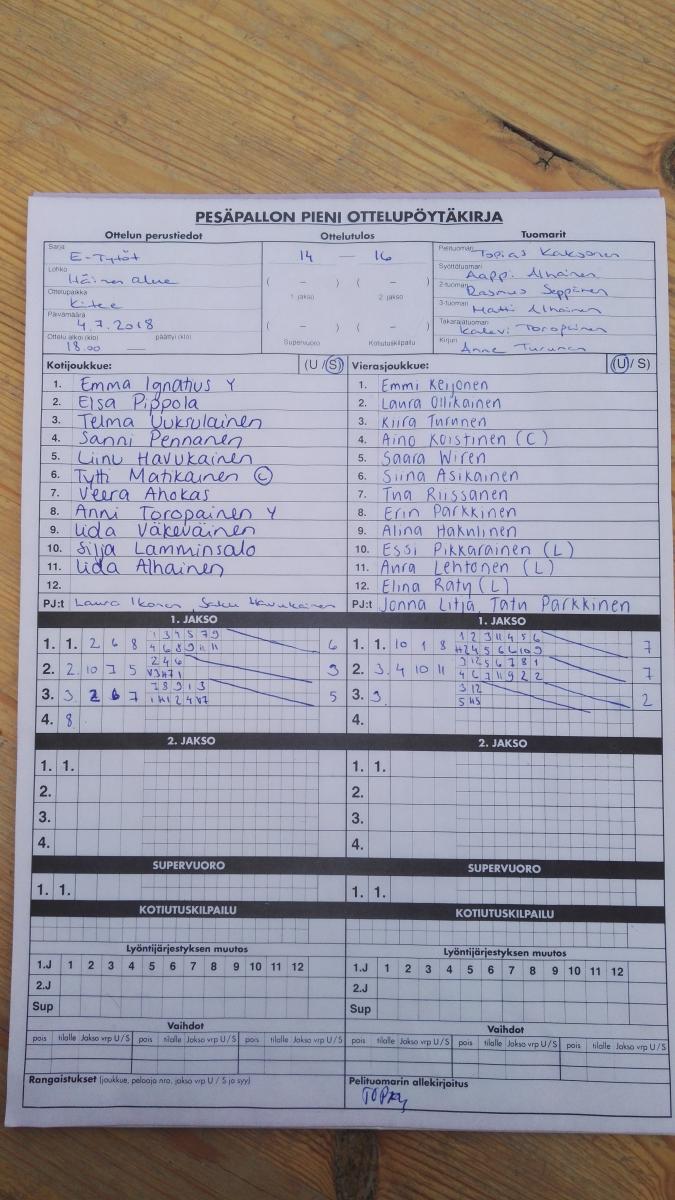 PESÄPALLON PIENI OTTELUPÖYTÄKIRJA
Ottelun perustiedot Ottelutulos Tuomarit
Sarja E-Tytöt
14 — 16
Pelituomari Topias Kaksonen
Lohko Itäinen alue
( – ) ( – )
1. jakso 2. jakso
Syöttötuomari Aappi Alhainen
Ottelupaikka Kitee
2-tuomari Rasmus Seppänen
Päivämäärä 4.7.2018
3-tuomari Matti Alhainen
( – ) ( – )
Supervuoro Kotiutuskilpailu
Takarajatuomari Kalevi Toropainen
Ottelu alkoi (klo) 18.00 päättyi (klo)
Kirjuri Anne Turunen
Kotijoukkue: (U / S) Vierasjoukkue: (U / S)
1. Emma Ignatius Y 1. Emmi Keijonen
2. Elsa Pippola 2. Laura Ollikainen
3. Telma Uuksulainen 3. Kiira Turunen
4. Sanni Pennanen 4. Aino Koistinen (C)
5. Liinu Havukainen 5. Saara Wiren
6. Tytti Matikainen C 6. Siina Asikainen
7. Veera Ahokas 7. Riissanen
8. Anni Toropainen Y 8. Erin Parkkinen
9. Iida Väkeväinen 9. Alina Hakulinen
10. Silja Lamminsalo 10. Essi Pikkarainen (L)
11. Iida Alhainen 11. Anra Lehtonen (L)
12. 12. Elina Räty (L)
PJ:t Laura Ikonen, Saku Havukainen PJ:t Jonna Litja, Tatu Parkkinen
1. JAKSO 1. JAKSO
1. 1. 2 6 8 1 3 4 5 7 9 6 1. 1. 10 1 8 1 2 3 11 4 5 6 7
4 6 8 9 11 11
2. 2. 10 3 5 2 4 6 3 2. 3. 4 10 11 7
3. 3. 2 6 7 7 8 9 1 3 5 3. 9. 3 12 2
4. 8. 4.
2. JAKSO 2. JAKSO
1. 1. 1. 1.
2. 2.
3. 3.
4. 4.
SUPERVUORO SUPERVUORO
1. 1. 1. 1.
KOTIUTUSKILPAILU KOTIUTUSKILPAILU
Lyöntijärjestyksen muutos Lyöntijärjestyksen muutos
1.J 1 2 3 4 5 6 7 8 9 10 11 12 1.J 1 2 3 4 5 6 7 8 9 10 11 12
2.J 2.J
Sup Sup
Vaihdot Vaihdot
pois tilalle Jakso vrp U/S pois tilalle Jakso vrp U/S pois tilalle Jakso vrp U/S pois tilalle Jakso vrp U/S pois tilalle Jakso vrp U/S pois tilalle Jakso vrp U/S
Rangaistukset (joukkue, pelaaja nro, jakso vrp U / S ja syy) Pelituomarin allekirjoitus